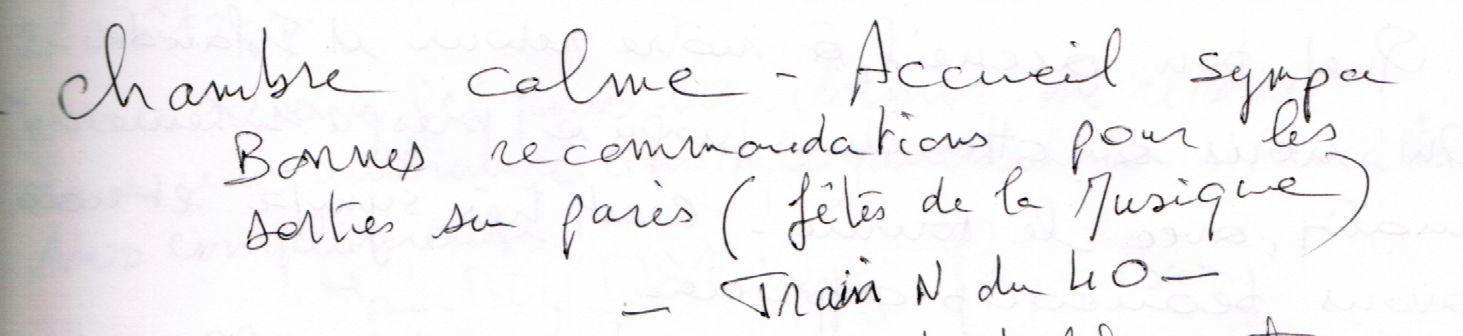 Chambre calme - Accueil sympa
Bonnes recommandations pour les
sorties sur paris (fêtes de la Musique)
- N du 40 -